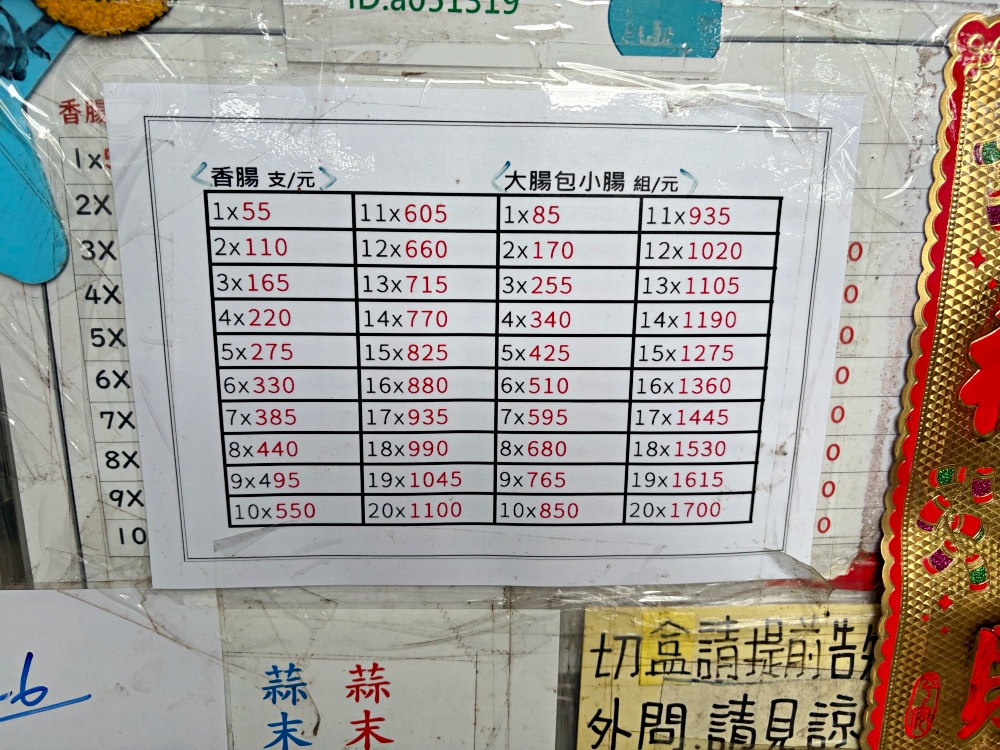 ID:a051319
香腸
1x
2X
3X
4X
5X
6X
7X
8X
9X
10
香腸 支/元
大腸包小腸 組/元
1x55 11x605 1x85 11x935
2x110 12x660 2x170 12x1020
3x165 13x715 3x255 13x1105
4x220 14x770 4x340 14x1190
5x275 15x825 5x425 15x1275
6x330 16x880 6x510 16x1360
7x385 17x935 7x595 17x1445
8x440 18x990 8x680 18x1530
9x495 19x1045 9x765 19x1615
10x550 20x1100 10x850 20x1700
0
0
0
0
0
0
0
0
蒜末
蒜末
切盒請提前告知
外問.請見諒